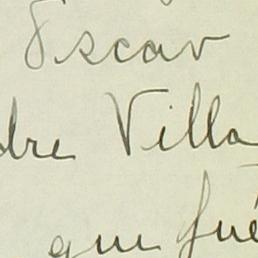 Oscar
dre Villa
que fué